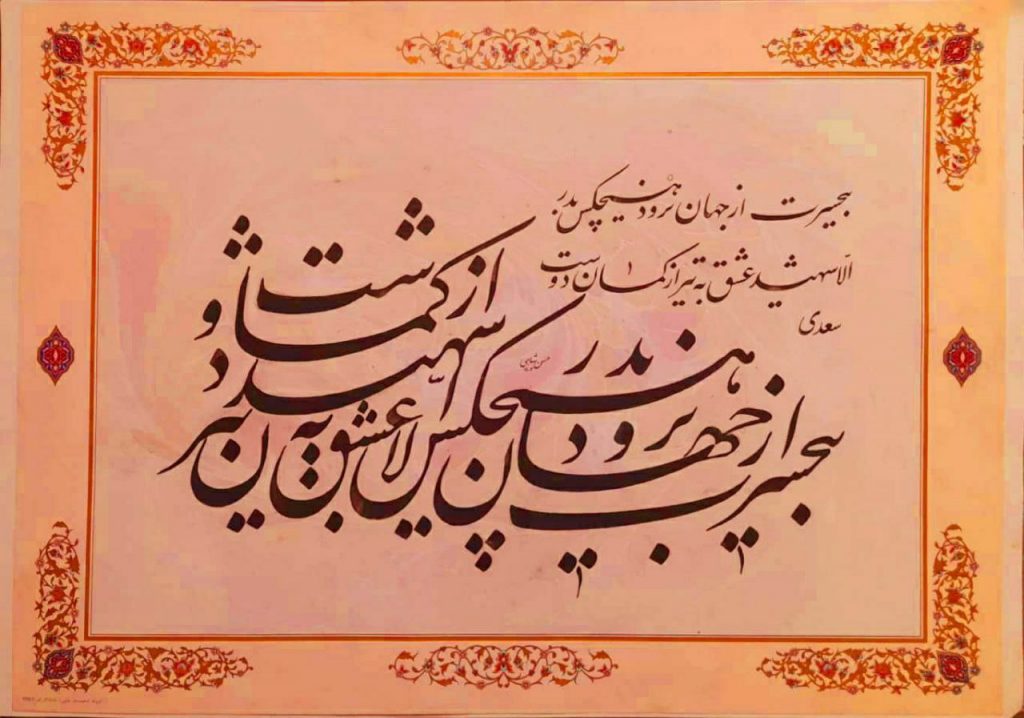 بحسرت از جهان نرود هیچکس بدر
الا شهید عشق به تیر از کمان دوست
سعدی
بحسرت از جهان نرود هیچکس بدر
الا شهید عشق به تیر از کمان دوست